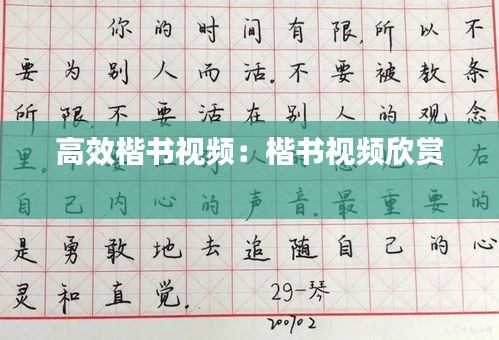 你的时间有限,所以不
要为别人而活。不要被教条
所限,不要活在别人的观念
高效楷书视频：楷书视频欣赏
里。 右
自己内心的声音。最重要的
是勇敢地去追随自己的心
灵和直觉。 29-琴
200702